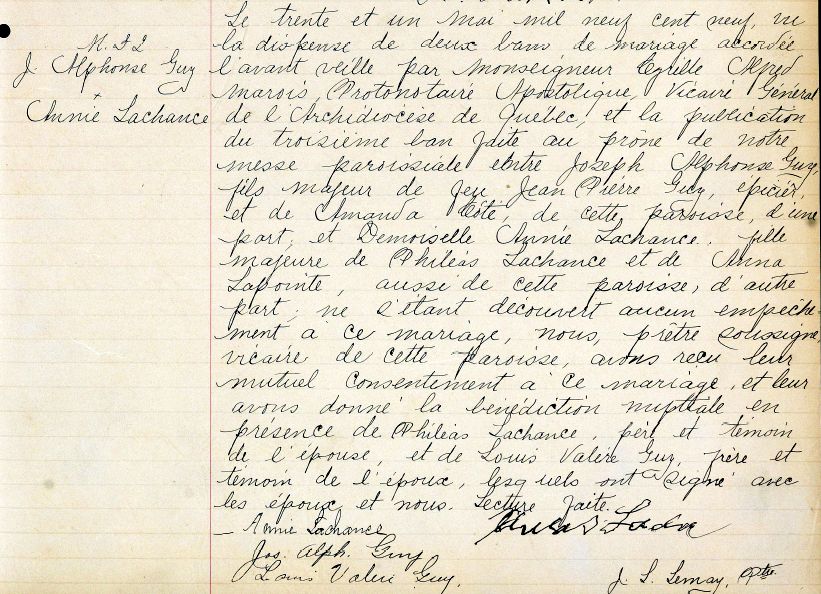 M. 52
J. Alphonse Guy
+
Annie Lachance
Le trente et un mai mil neuf cent neuf, vu
la dispense de deux bans de mariage accordée
l'avant veille par Monseigneur Cyrille Alfred
Marois, Protonotaire Apostolique, Vicaire Général
de l'Archidiocèse de Québec, et la publication
du troisième ban faite au prône de notre
messe paroissiale entre Joseph Alphonse Guy,
fils majeur de feu Jean Pierre Guy, épicier,
et de Amanda Côté, de cette paroisse, d'une
part, et Demoiselle Annie Lachance, fille
majeure de Philéas Lachance et de Anna
Lapointe, aussi de cette paroisse, d'autre
part; ne s'étant découvert aucun empêche-
ment à ce mariage, nous, prêtre soussigné,
vicaire de cette paroisse, avons reçu leur
mutuel consentement à ce mariage, et leur
avons donné la bénédiction nuptiale en
présence de Philéas Lachance, père et témoin
de l'épouse, et de Louis Valère Guy, frère et
témoin de l'époux, lesquels ont signé avec
les époux et nous. Lecture faite.
Annie Lachance
Jos. Alph. Guy
Louis Valère Guy.
J. S. Lemay, Ptre